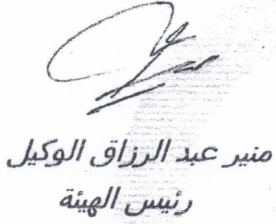 منير عبد الرزاق الوكيل
رئيس الهيئة